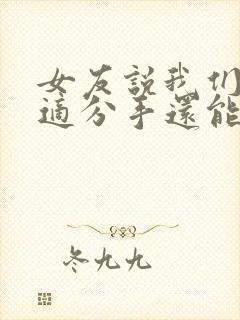 女友説我们
適分手還能
冬九九